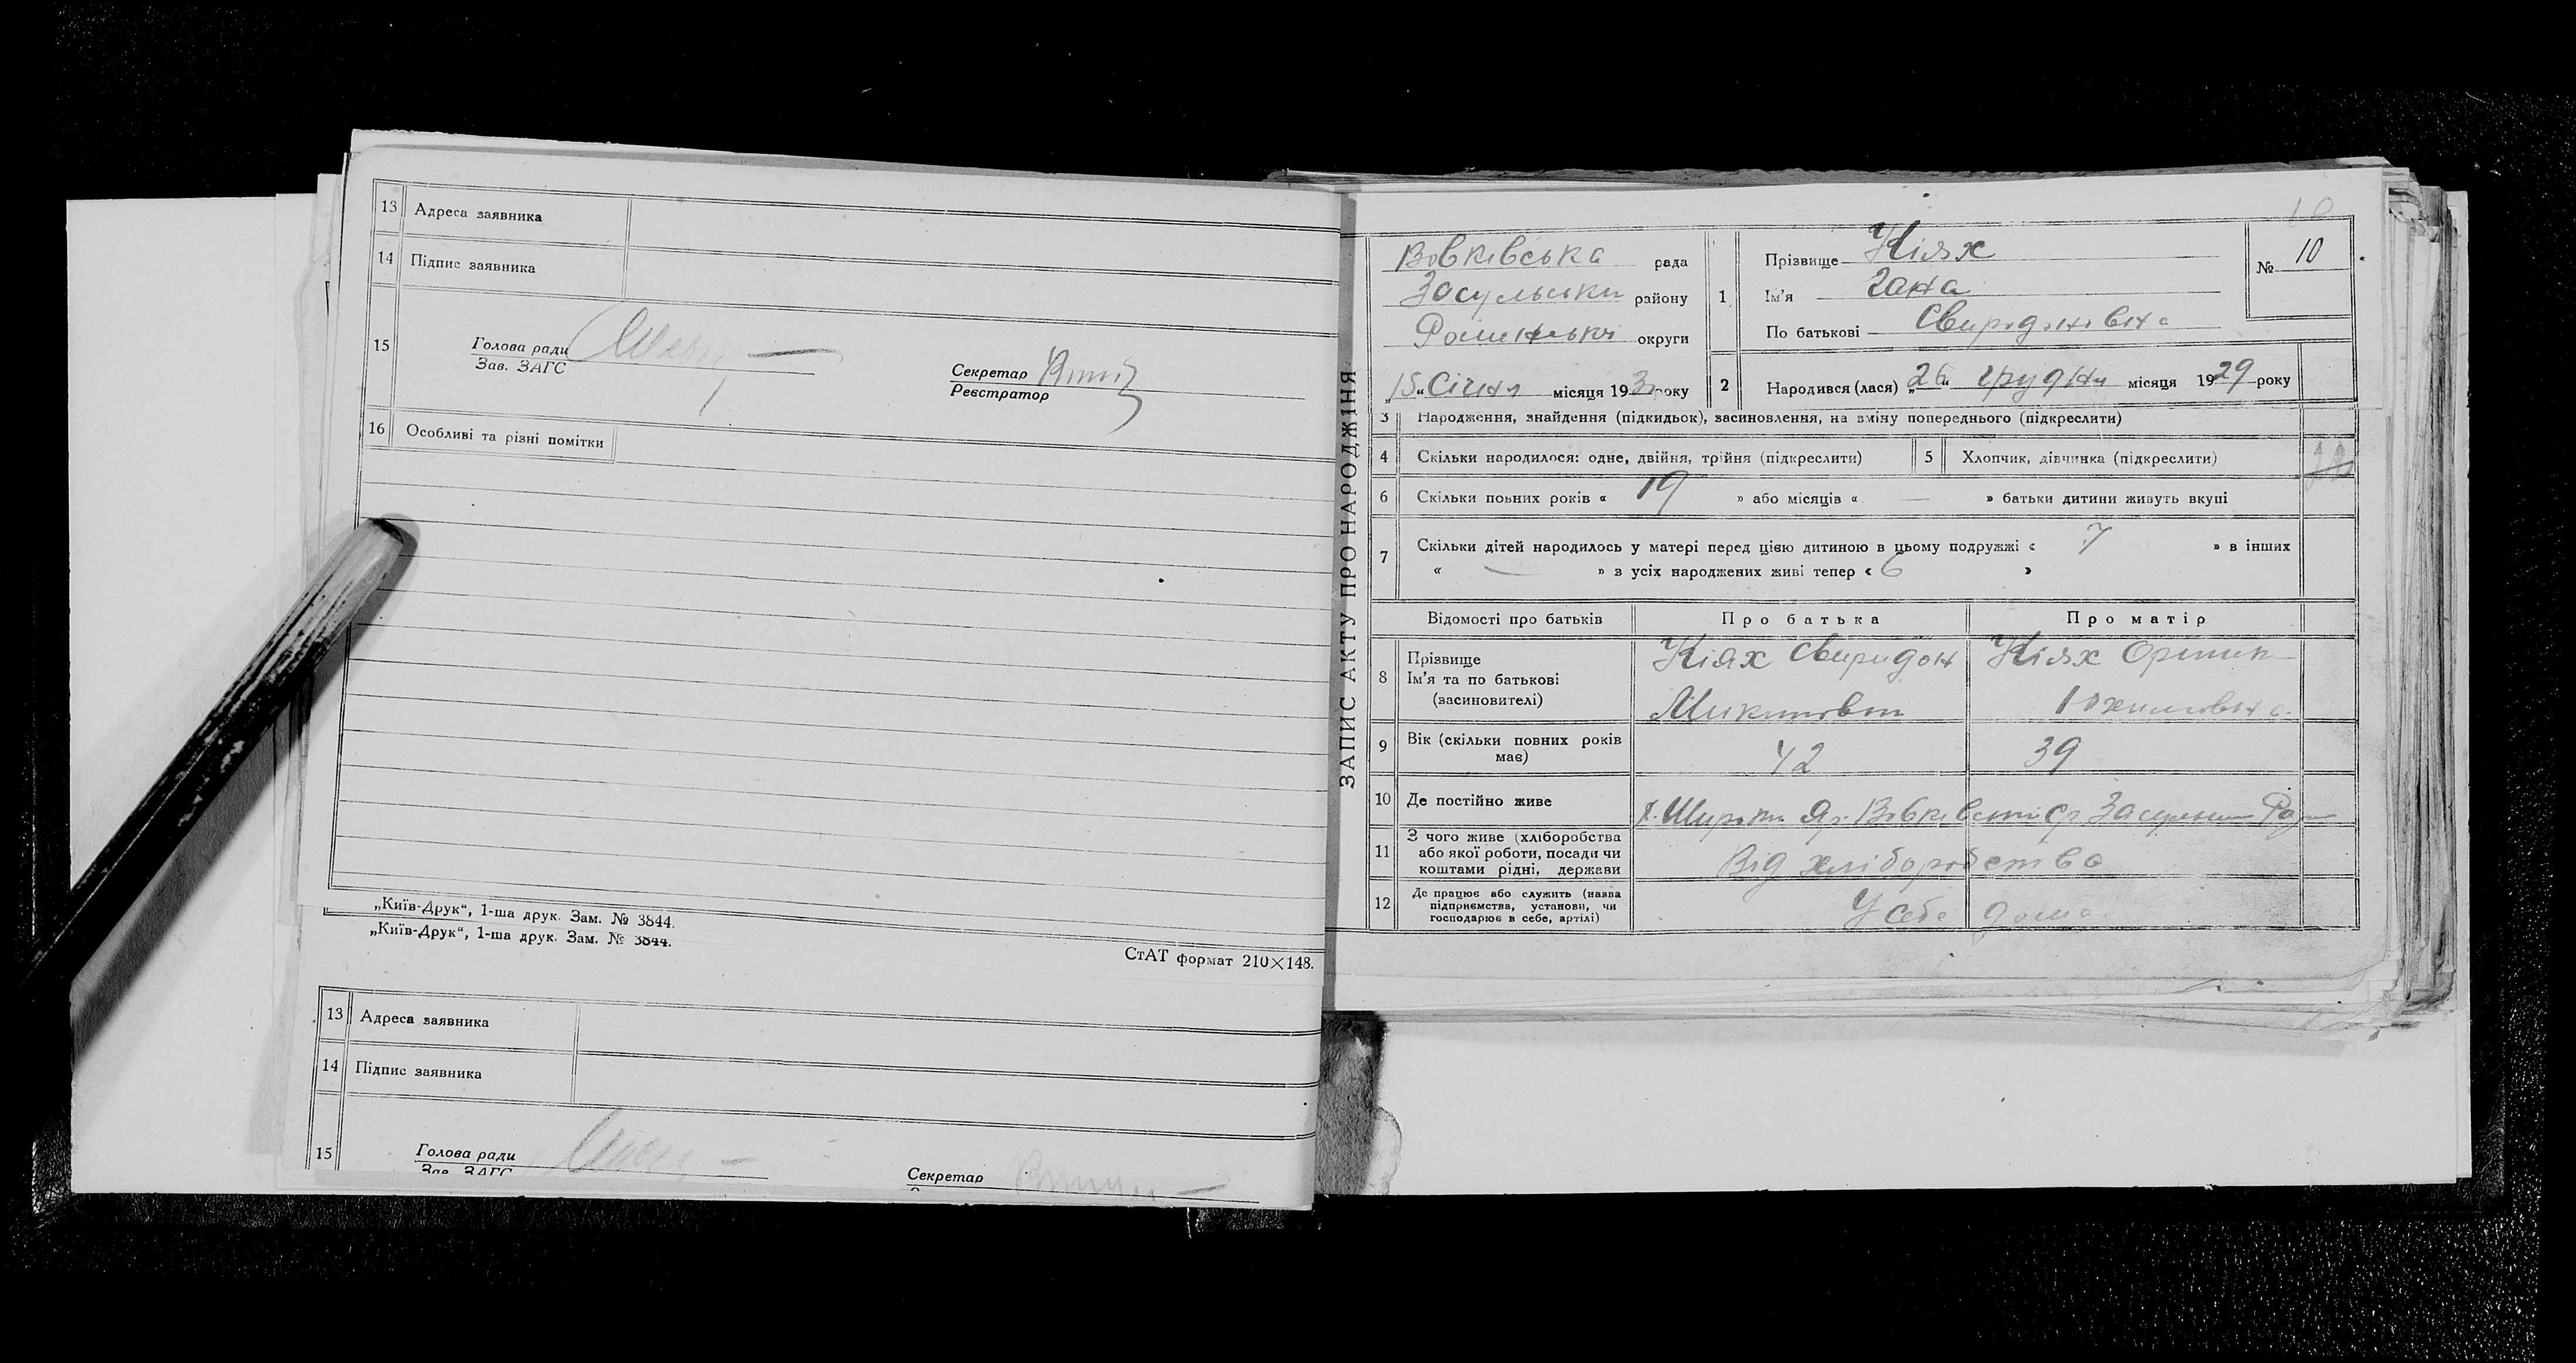 13 Адреса заявника
14 Підпис заявника
15 Голова ради
Зав. ЗАГС
Секретар
Реєстратор
16 Особливі та різні помітки
„Київ-Друк“, 1-ша друк. Зам. № 3844.
„Київ-Друк“, 1-ша друк. Зам. № 3844.
СтАТ формат 210×148.
13 Адреса заявника
14 Підпис заявника
15 Голова ради
Зав. ЗАГС
Секретар
ЗАПИС АКТУ ПРО НАРОДЖІННЯ
10
Вовківська рада
Засульськи району
округи
„15“ Січня місяця 193 року
1 Прізвище Кіях
Ім'я Гана
По батькові Свиридонівна
№ 10
2 Народився (лася) „26“ грудни місяця 1929 року
3 Народження, знайдення (підкидьок), засиновлення, на зміну попереднього (підкреслити)
4 Скільки народилося: одне, двійня, трійня (підкреслити)
5 Хлопчик, дівчинка (підкреслити)
6 Скільки повних років « 19 » або місяців « — » батьки дитини живуть вкупі
7 Скільки дітей народилось у матері перед цією дитиною в цьому подружжі « 7 » в інших
« — » з усіх народжених живі тепер « 6 »
Відомості про батьків
Про батька
Про матір
8 Прізвище
Ім'я та по батькові
(засиновителі)
Кіях Свиридон
Кіях
9 Вік (скільки повних років
має)
42
39
10 Де постійно живе
11 З чого живе (хліборобства
або якої роботи, посади чи
коштами рідні, держави
Від хліборобства
12 Де працює або служить (назва
підприємства, установи, чи
господарює в себе, артілі)
У себе дома